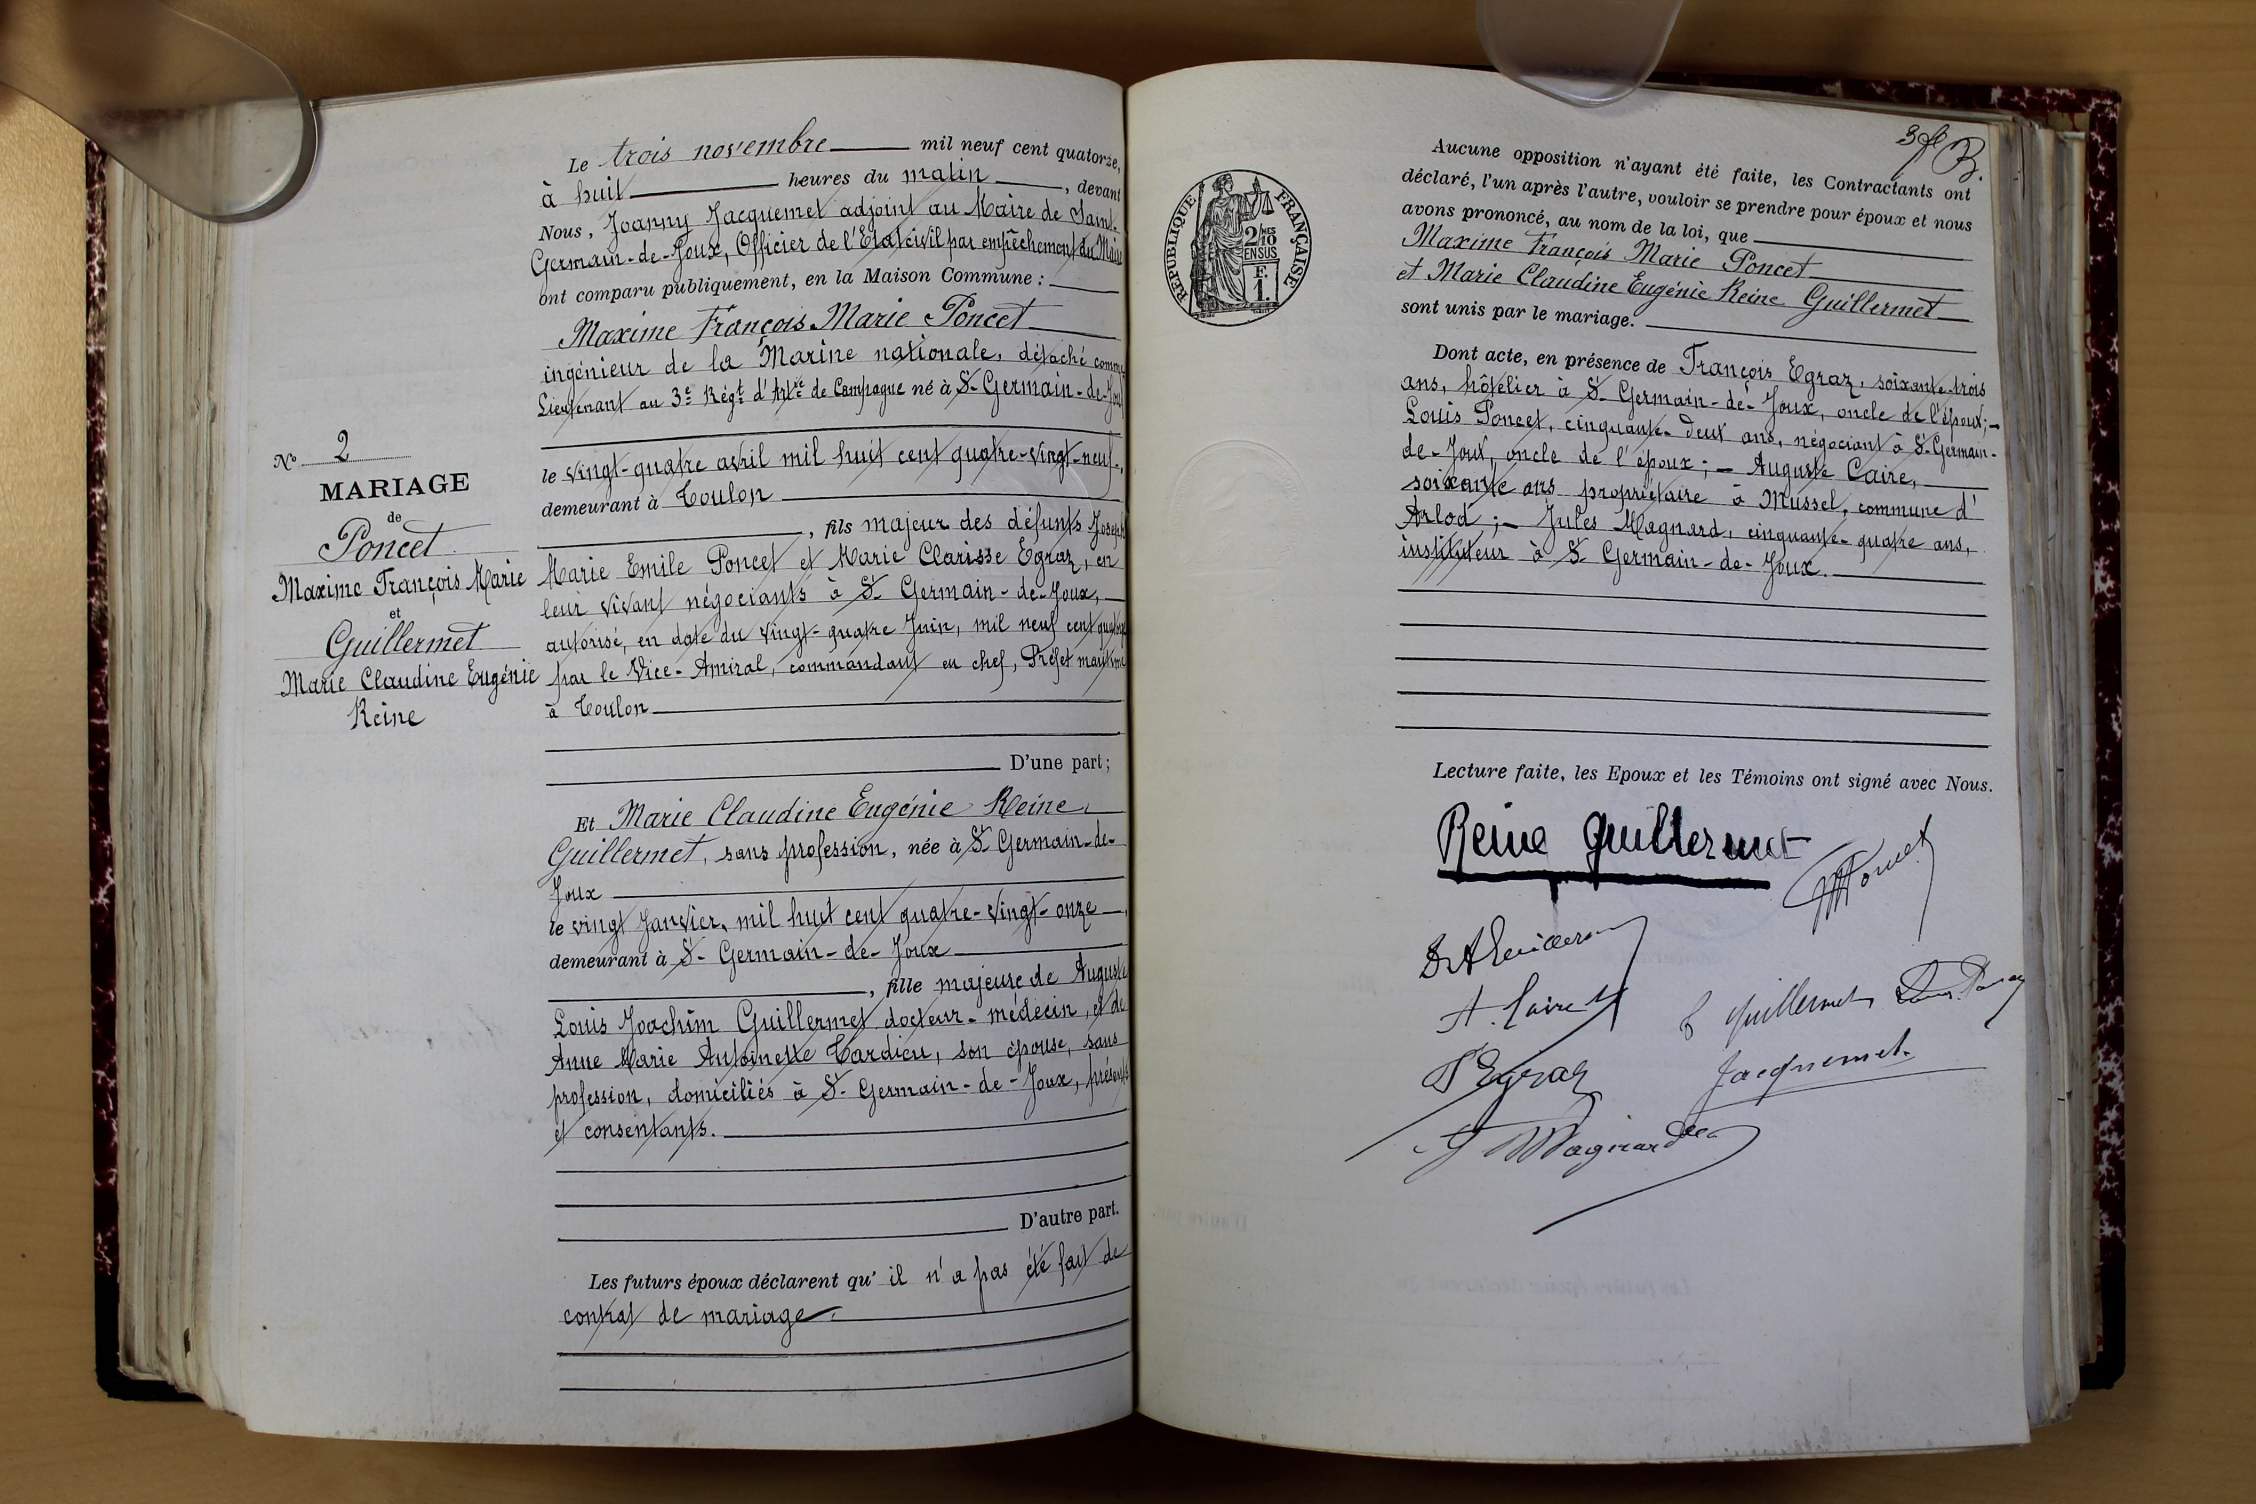 Le trois novembre mil neuf cent quatorze,
à huit heures du matin, devant
Nous, Joanny Jacquemet adjoint au Maire de Saint-
Germain-de-Joux, Officier de l'Etat civil par empêchement du Maire
ont comparu publiquement, en la Maison Commune :
Maxime François Marie Poncet
ingénieur de la Marine nationale, détaché comme
Lieutenant au 3e Régt d'Artie de Campagne né à St Germain-de-Joux
le vingt-quatre avril mil huit cent quatre-vingt-neuf,
demeurant à Toulon
, fils majeur des défunts Joseph
Marie Emile Poncet et Marie Clarisse Egraz, en
leur vivant négociants à St Germain-de-Joux,
autorisé, en date du vingt-quatre Juin, mil neuf cent quatorze
par le Vice-Amiral, commandant en chef, Préfet maritime
à Toulon
D'une part;
Et Marie Claudine Eugénie Reine
Guillermet, sans profession, née à St Germain-de-
Joux
le vingt Janvier, mil huit cent quatre-vingt-onze,
demeurant à St Germain-de-Joux
, fille majeure de Auguste
Louis Joachim Guillermet, docteur-médecin, et de
Anne Marie Antoinette Tardieu, son épouse, sans
profession, domiciliés à St Germain-de-Joux, présents
et consentants.
D'autre part.
Les futurs époux déclarent qu'il n'a pas été fait de
contrat de mariage.
No 2
MARIAGE
de
Poncet
Maxime François Marie
et
Guillermet
Marie Claudine Eugénie
Reine
RÉPUBLIQUE FRANÇAISE
2/10MES
EN SUS
F.
1.
3 fe B.
Aucune opposition n'ayant été faite, les Contractants ont
déclaré, l'un après l'autre, vouloir se prendre pour époux et nous
avons prononcé, au nom de la loi, que
Maxime François Marie Poncet
et Marie Claudine Eugénie Reine Guillermet
sont unis par le mariage.
Dont acte, en présence de François Egraz, soixante-trois
ans, hôtelier à St Germain-de-Joux, oncle de l'époux;-
Louis Poncet, cinquante-deux ans, négociant à St Germain-
de-Joux, oncle de l'époux; - Auguste Caire,
soixante ans propriétaire à Mussel, commune d'
Arlod ;- Jules Magnard, cinquante-quatre ans,
instituteur à St Germain-de-Joux.
Lecture faite, les Epoux et les Témoins ont signé avec Nous.
Reine Guillermet
Poncet
Dr A Guillermet
A. Caire
Guillermet
F Egraz
Jacquemet.
J Magnard